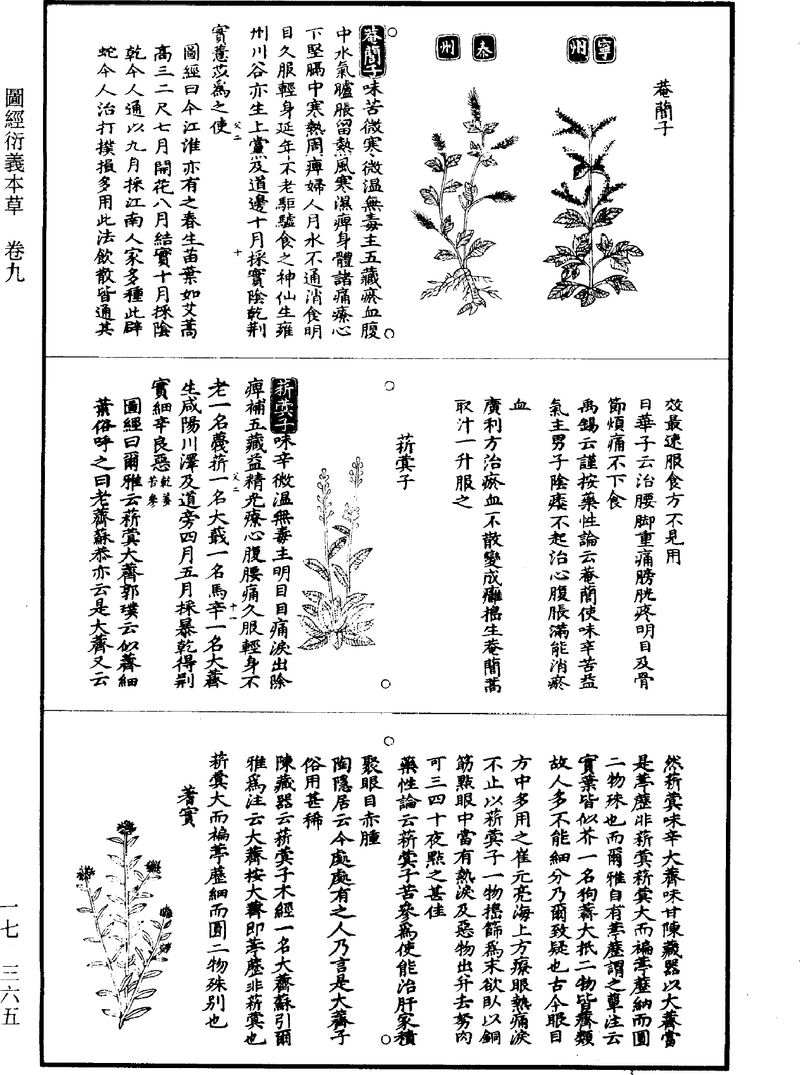 圖經衍義本草　卷九
菴䕡子
寧州
秦州
菴䕡子味苦微寒微溫無毒主五藏瘀血腹
中水氣臚脹留熱風寒濕痺身體諸痛療心
下堅膈中寒熱周痺婦人月水不通消食明
目久服輕身延年不老駏驉食之神仙生雍
州川谷亦生上黨及道邊十月採實陰乾荆
實薏苡為之使
圖經曰今江淮亦有之春生苗葉如艾蒿
高三二尺七月開花八月結實十月採陰
乾今人通以九月採江南人家多種此辟
蛇今人治打撲損多用此法飲散皆通其
效最速服食方不見用
日華子云治腰脚重痛膀胱疼明目及骨
節煩痛不下食
禹錫云謹按藥性論云菴䕡使味辛苦益
氣主男子陰痿不起治心腹脹滿能消瘀
血
廣利方治瘀血不散變成癰搗生菴䕡蒿
取汁一升服之
菥蓂子
菥蓂子味辛微溫無毒主明目目痛淚出除
痺補五藏益精光療心腹腰痛久服輕身不
老一名蔑菥一名大蕺一名馬辛一名大薺
生咸陽川澤及道旁四月五月採暴乾得荆
實細辛良惡乾薑苦參
圖經曰爾雅云菥蓂大薺郭璞云似薺細
葉俗呼之曰老薺蘇恭亦云是大薺又云
然菥蓂味辛大薺味甘陳藏器以大薺當
是葶藶非菥蓂菥蓂大而褊葶藶納而圓
二物殊也而爾雅自有葶藶謂之蕇注云
實葉皆似芥一名狗薺大抵二物皆薺類
故人多不能細分乃爾致疑也古今眼目
方中多用之崔元亮海上方療眼熱痛淚
不止以菥蓂子一物搗篩為末欲臥以銅
筋點眼中當有熱淚及惡物出并去努肉
可三四十夜點之甚佳
藥性論云菥蓂子苦參為使能治肝家積
聚眼目赤腫
陶隱居云今處處有之人乃言是大薺子
俗用甚稀
陳藏器云菥蓂子本經一名大薺蘇引爾
雅為注云大薺按大薺即葶藶非菥蓂也
菥蓂大而褊葶藶細而圓二物殊別也
蓍實
一七　三六五